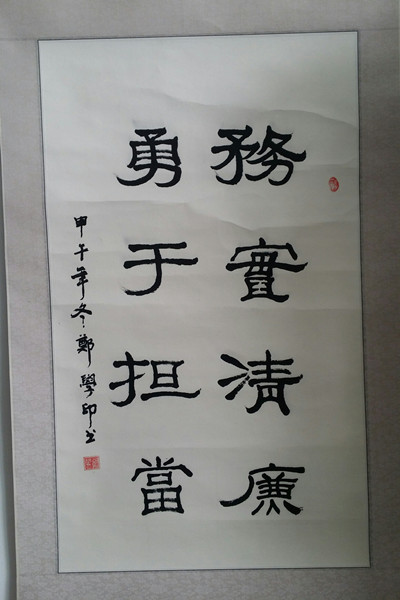 務實清廉
勇于担當
甲午年冬鄭學印书